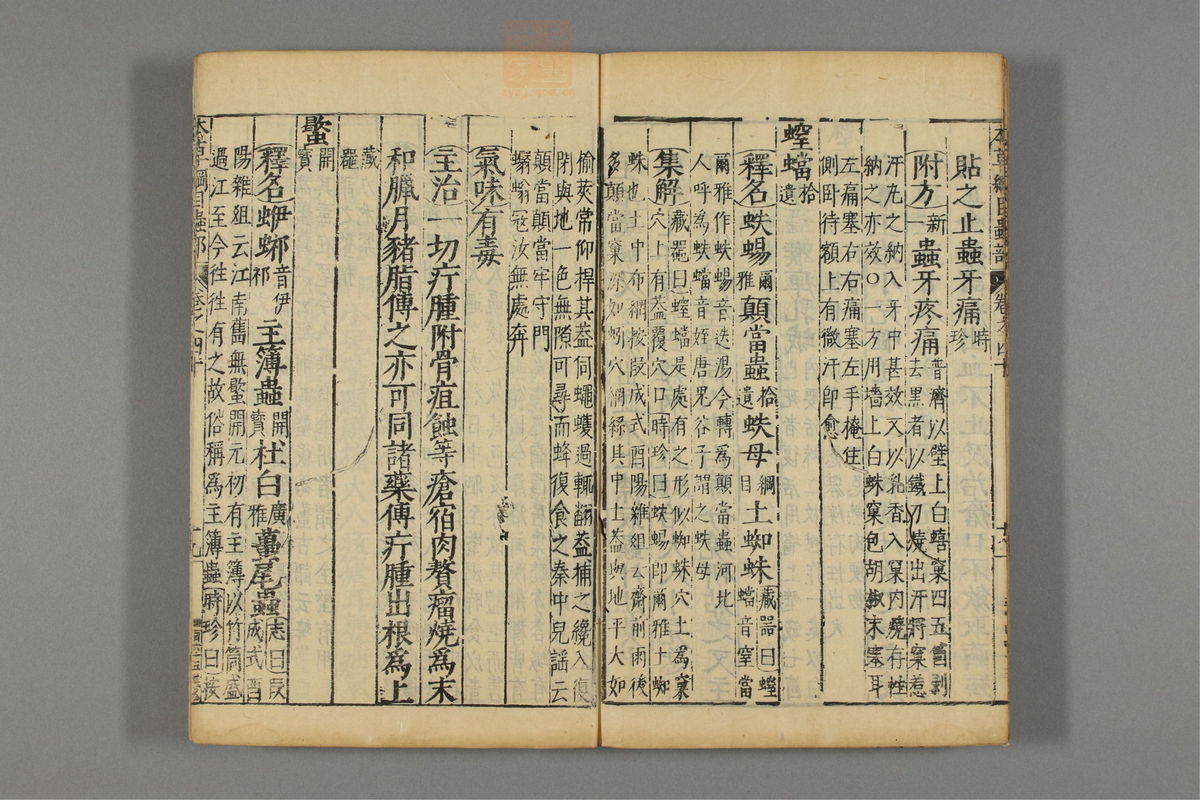 本草綱目蟲部 卷之四十
貼之止蟲牙痛時珍
附方新一蟲牙疼痛普濟以壁上白蟢窠四五箇剥
去黑者以鐵刀燒出汗將窠惹
汗丸之納入牙中甚效又以乳香入窠内燒存性
納之亦效○一方用墻上白蛛窠包胡椒末塞耳
左痛塞右右痛塞左手掩住
側卧待額上有微汗即愈
螲蟷拾遺
釋名蛈蝪爾雅顛當蟲拾遺蛈母綱目土蜘蛛藏器曰螲
蟷音窒當
爾雅作蛈蝪音迭湯今轉爲顛當蟲河北
人呼爲蛈蟷音姪唐鬼谷子謂之蛈母
集解藏器曰螲蟷是處有之形似蜘蛛穴土爲窠
穴上有蓋覆穴口時珍曰蛈蝪即爾雅土蜘
蛛也土中布網按段成式酉陽雜俎云齋前雨後
多顛當窠深如蚓穴網絲其中土蓋與地平大如
榆莢常仰捍其蓋伺蠅蠖過輒翻蓋捕之纔入復
閉與地一色無隙可尋而蜂復食之秦中兒謡云
顛當顛當牢守門
蠮螉寇汝無處奔
氣味有毒
主治一切疔腫附骨疽蝕等瘡宿肉贅瘤燒爲末
和臘月豬脂傅之亦可同諸藥傅疔腫出根爲上
藏
器
蠍開寶
釋名蛜𧍪音伊祁主簿蟲開寶杜白廣雅蠆尾蟲志曰段
成式酉
陽雜俎云江南舊無蠍開元初有主簿以竹筒盛
過江至今徃徃有之故俗稱爲主簿蟲時珍曰按
本草綱目蟲部 卷之四十